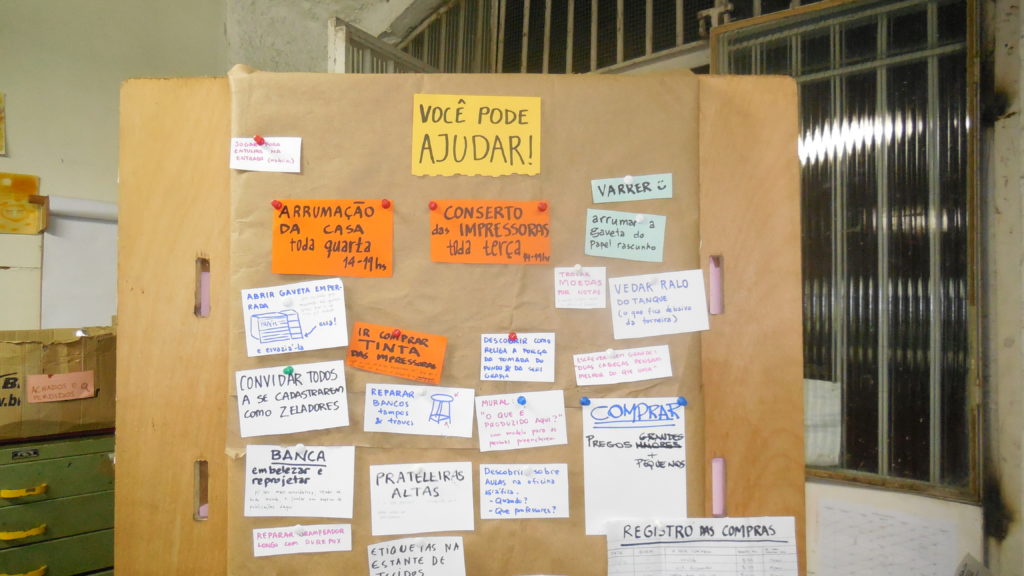 VOCÊ PODE
AJUDAR!
JOGAR FORA
ENTULHO NA
ENTRADA
ARRUMAÇÃO
DA CASA
toda quarta
14-19hs
CONSERTO
das IMPRESSORAS
toda terça
14-19hs
VARRER
arrumar a
gaveta do
papel rascunho
ABRIR GAVETA EMPER-
RADA
essa!
e esvaziá-la
TROCAR
MOEDAS
POR NOTAS
VEDAR RALO
DO TANQUE
(o que fica debaixo
da torneira)
IR COMPRAR
TINTA
DAS IMPRESSORAS
DESCOBRIR COMO
RELIGA A FORÇA
DA TOMADA DO
FUNDO & DA SERI
GRAFIA
ESCREVER EM GRANDE:
"DUAS CABEÇAS PENSAM
MELHOR DO QUE UMA"
ACHADOS E
PERDIDOS
CONVIDAR TODOS
A SE CADASTRAREM
COMO ZELADORES
REPARAR
BANCOS
tampos
& traves
MURAL
"O QUE É
PRODUZIDO AQUI?"
um modelo para as
pessoas preencherem
COMPRAR
PREGOS GRANDES
MAIORES
+
PEQUENOS
BANCA
embelezar e
reprojetar
PRATELEIRAS
ALTAS
Descobrir sobre
AULAS na oficina
gráfica.
- Quando?
- Que professores?
REPARAR GRAMPEADOR
LONGO COM DUREPOX
ETIQUETAS NA
ESTANTE DE
TECIDOS
REGISTRO DAS COMPRAS